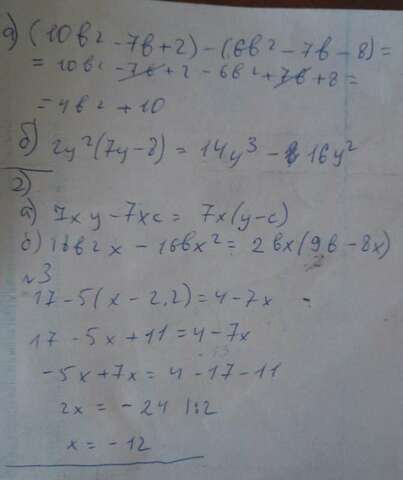 а) (10в² - 7в + 2) - (6в² - 7в - 8) =
= 10в² - 7в + 2 - 6в² + 7в + 8 =
= 4в² + 10
б) 2y²(7y - 8) = 14y³ - 16y²
2)
а) 7xy - 7xc = 7x(y - c)
б) 18в²x - 16вx² = 2вx(9в - 8x)
№3
17 - 5(x - 2,2) = 4 - 7x
17 - 5x + 11 = 4 - 7x
-5x + 7x = 4 - 17 - 11
2x = -24 |:2
x = -12